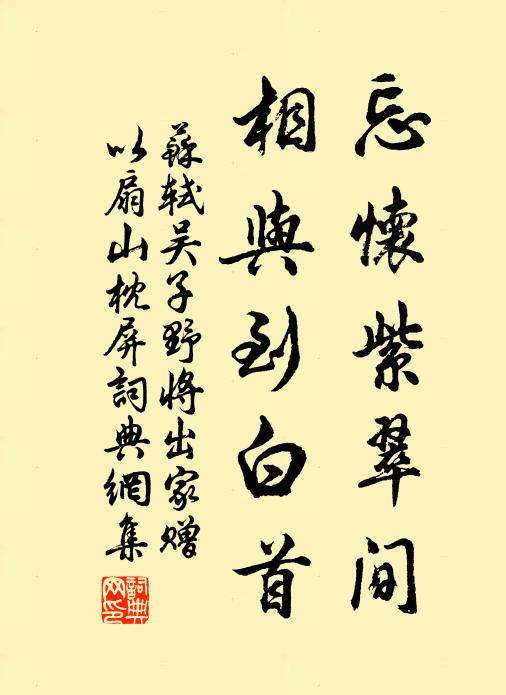 忘懷紫翠間
相與到白首
蘇軾吴子野將出家赠
以扇山枕屏詞典網集
詞典網印